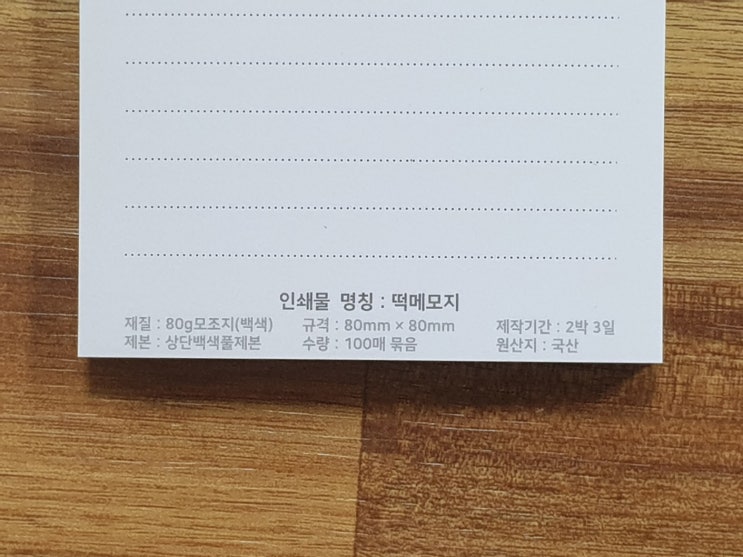 인쇄물 명칭 : 떡메모지
재질 : 80g모조지(백색) 규격 : 80mm × 80mm 제작기간 : 2박 3일
제본 : 상단백색풀제본 수량 : 100매 묶음 원산지 : 국산